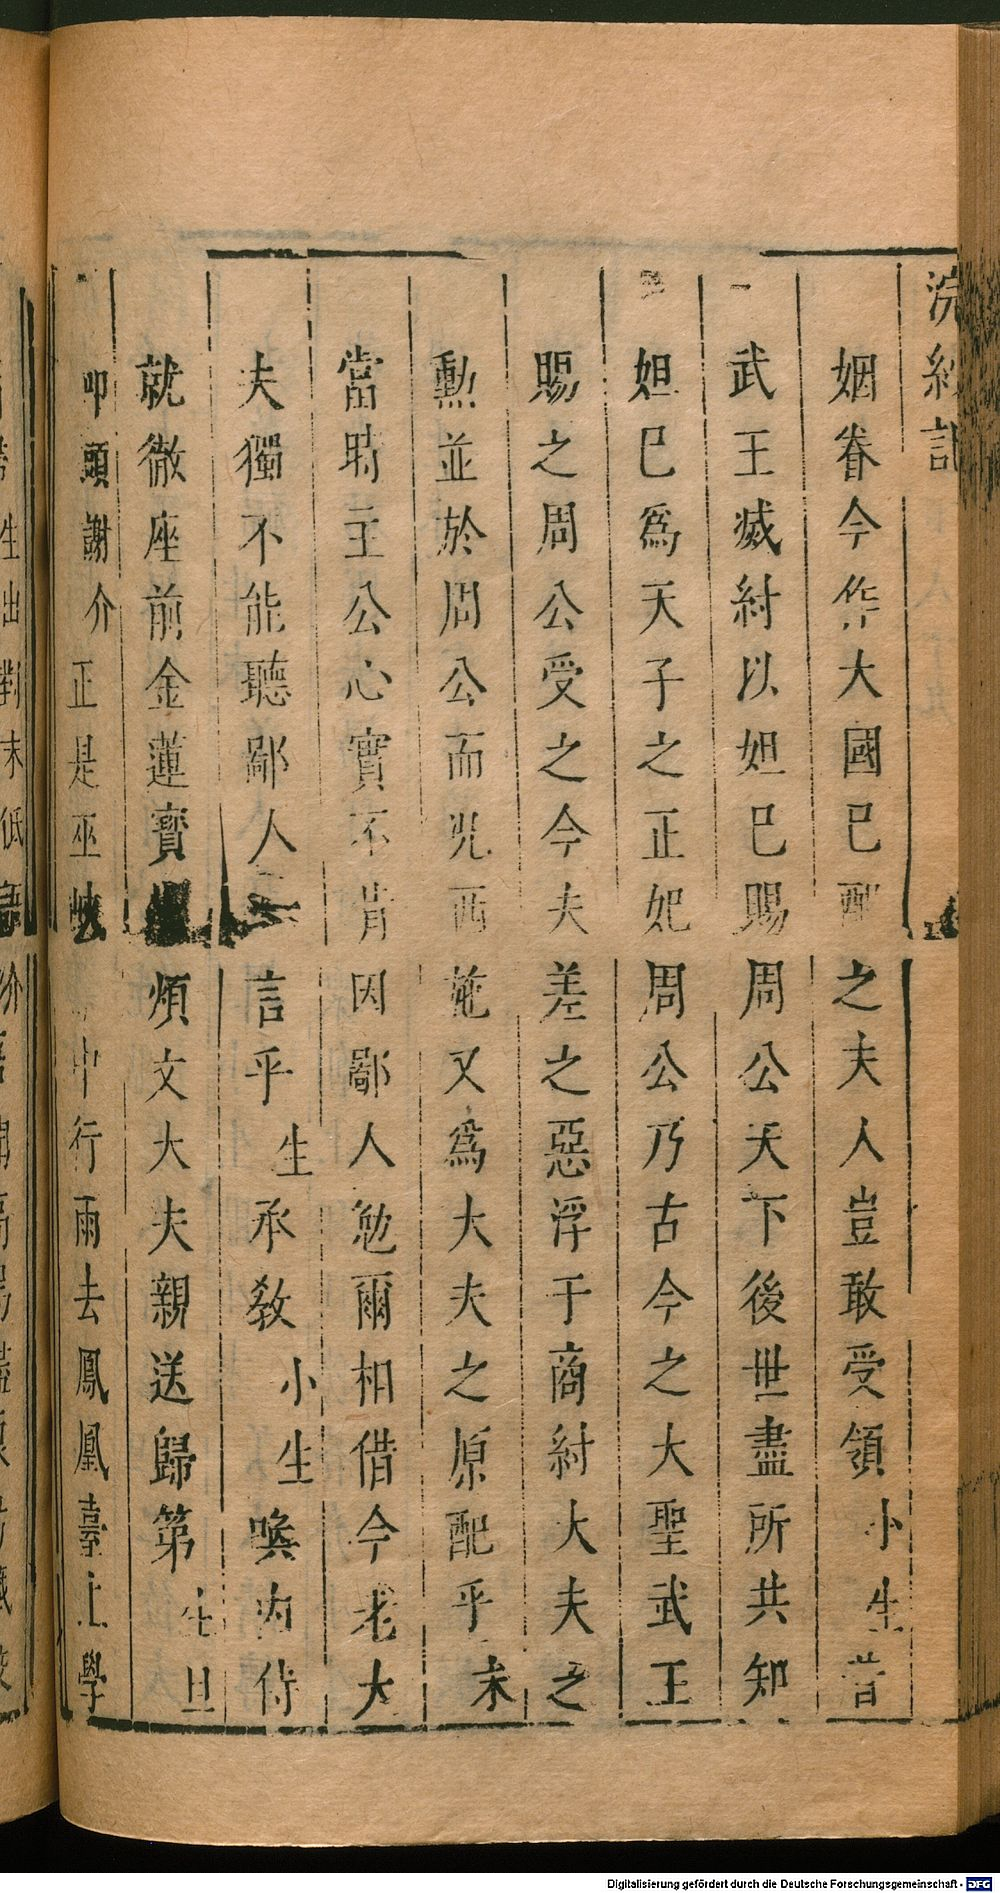 浣紗記
姻眷今作大國已配之夫人豈敢受領小生昔
武王滅紂以妲已賜周公天下後世盡所共知
妲已爲天子之正妃周公乃古今之大聖武王
賜之周公受之今夫差之惡浮于商紂大夫之
勲並於周公而况西施又爲大夫之原配乎末
當時主公心實不肯因鄙人勉爾相借今老大
夫獨不能聽鄙人一言乎生承敎小生喚内侍
就徹座前金蓮寳燭煩文大夫親送歸第生旦
叩頭謝介正是巫峽中行雨去鳳凰臺上學
Digitalisierung gefördert durch die Deutsche Forschungsgemeinschaft - DFG